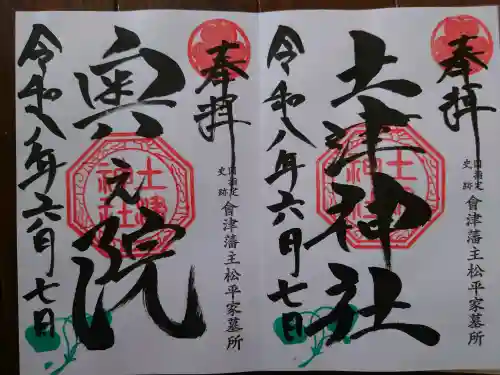 奉拝
国指定
史跡
會津藩主松平家墓所
土津神社
土津
神社
令和八年六月七日
奉拝
国指定
史跡
會津藩主松平家墓所
奥之院
土津
神社
令和八年六月七日